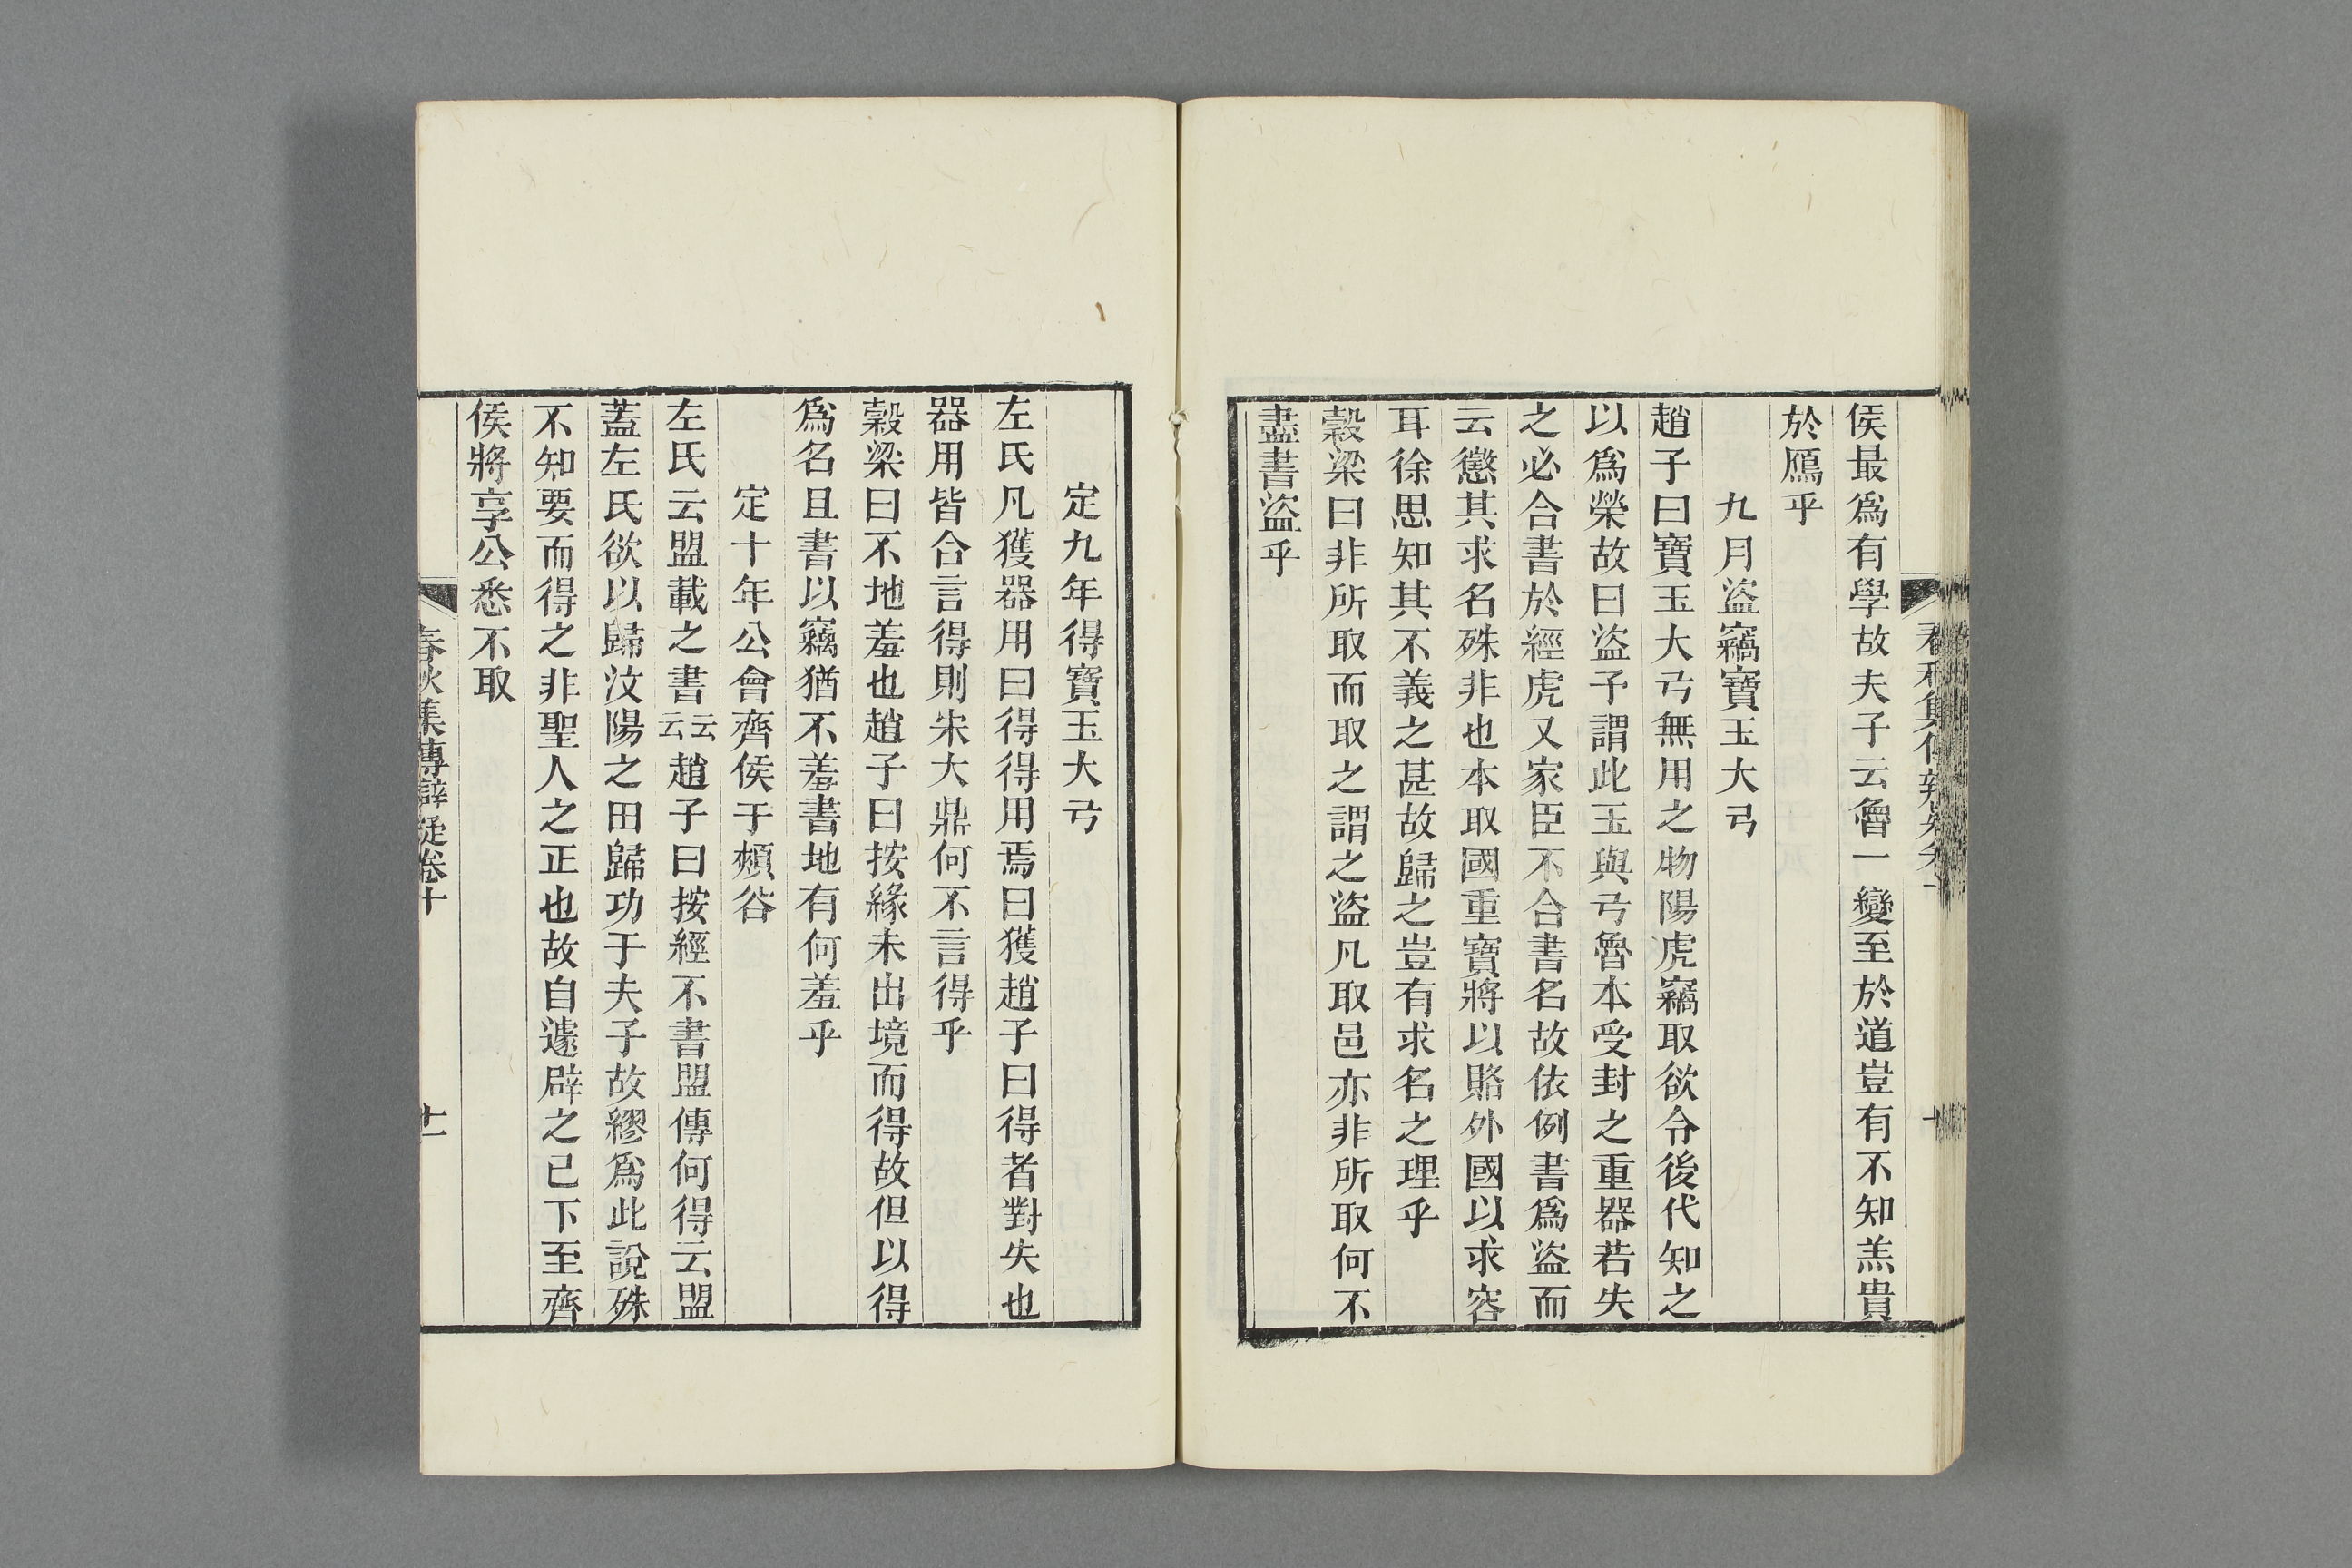 侯最爲有學故夫子云魯一變至於道豈有不知羔貴
於鴈乎
九月盜竊寶玉大弓
趙子曰寶玉大弓無用之物陽虎竊取欲令後代知之
以爲榮故曰盜予謂此玉與弓魯本受封之重器若失
之必合書於經虎又家臣不合書名故依例書爲盜而
云懲其求名殊非也本取國重寶將以賂外國以求容
耳徐思知其不義之甚故歸之豈有求名之理乎
穀梁曰非所取而取之謂之盜凡取邑亦非所取何不
盡書盜乎
定九年得寶玉大弓
左氏凡獲器用曰得得用焉曰獲趙子曰得者對失也
器用皆合言得則宋大鼎何不言得乎
穀梁曰不地羞也趙子曰按緣未出境而得故但以得
爲名且書以竊猶不羞書地有何羞乎
定十年公會齊侯于頰谷
左氏云盟載之書云云趙子曰按經不書盟傳何得云盟
蓋左氏欲以歸汶陽之田歸功于夫子故繆爲此說殊
不知要而得之非聖人之正也故自遽辟之已下至齊
侯將享公悉不取
春秋集傳辯疑卷十
十一